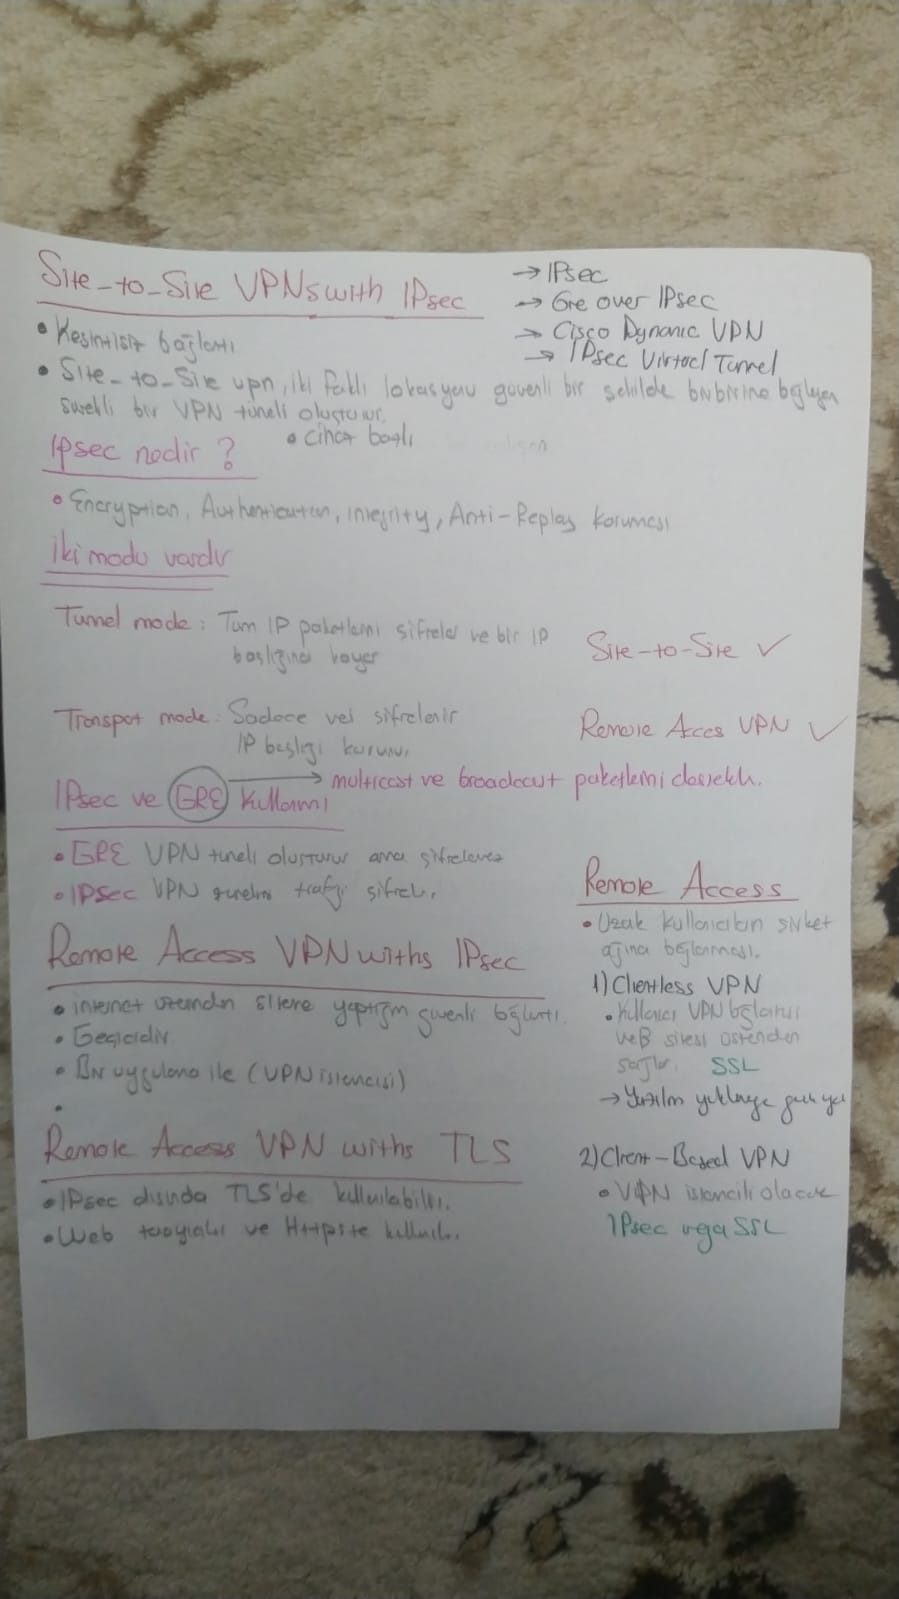 Site-to-Site VPNs with IPsec
→ IPsec
→ Gre over IPsec
→ Cisco Dynamic VPN
→ IPsec Virtual Tunnel
• Kesintisiz bağlantı
• Site-to-Site vpn, iki farklı lokasyonu güvenli bir şekilde birbirine bağlayan
sürekli bir VPN tüneli oluşturur.
• Cihaz bağlı
IPsec nedir ?
• Encryption, Authentication, Integrity, Anti-Replay koruması
İki modu vardır
Tunnel mode : Tüm IP paketlerini şifreler ve bir IP
başlığına koyar
Site-to-Site ✓
Transpot mode : Sadece veri şifrelenir
IP başlığı korunur
Remote Acces VPN ✓
IPsec ve GRE kullanımı
→ multicast ve broadcast paketlerini destekler.
• GRE VPN tüneli oluşturur ama şifrelemez
• IPsec VPN trafiği şifreler.
Remote Access VPN withs IPsec
• internet üzerinden güvenli bağlantı.
• Geçicidir
• Bir uygulama ile (VPN istemcisi)
•
Remote Access VPN withs TLS
• IPsec dışında TLS'de kullanılabilir.
• Web tarayıcıları ve Https'te kullanılır.
Remote Access
• Uzak kullanıcıların şirket
ağına bağlanması.
1) Clientless VPN
• Kullanıcı VPN bağlantısı
web sitesi üstünden
sağlar. SSL
→ Yazılım yüklemeye gerek yok
2) Client-Based VPN
• VPN istemcili olacak
IPsec veya SSL